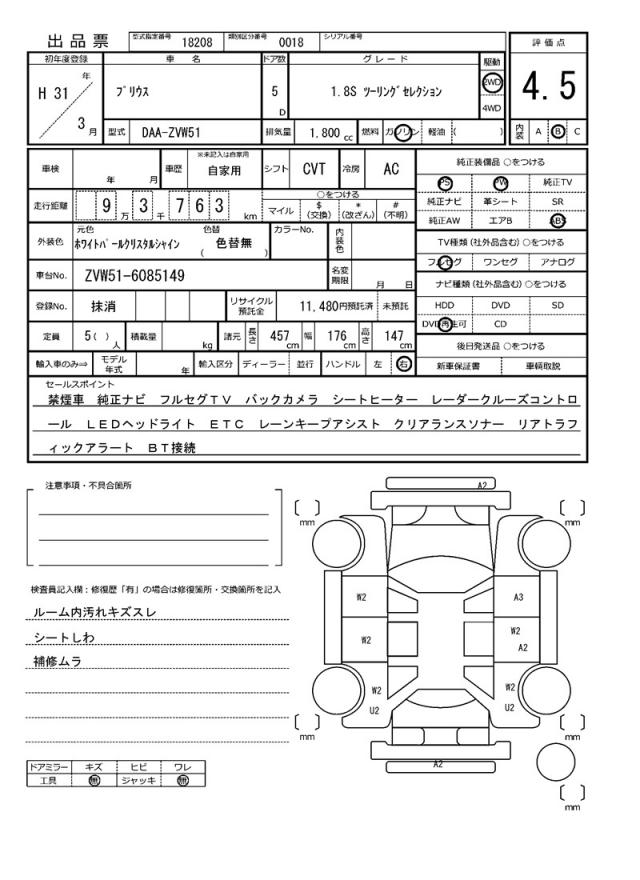 出品票 型式指定番号 18208 類別区分番号 0018 シリアル番号
評価点
初年度登録 車名 ドア数 グレード 駆動
H 31 年 プリウス 5 D 1.8S ツーリングセレクション 2WD 4WD
4.5
3 月 型式 DAA-ZVW51 排気量 1.800 cc 燃料 ガソリン 軽油 ( ) 内装 A B C
車検 年 月 車歴 ※未記入は自家用 自家用 シフト CVT 冷房 AC
純正装備品 ○をつける
PS PW 純正TV
純正ナビ 革シート SR
純正AW エアB ABS
走行距離 9 3 7 6 3 万 千 km ○をつける
マイル $ (交換) * (改ざん) # (不明)
外装色 元色 ホワイトパールクリスタルシャイン 色替 ( 色替無 ) カラーNo. 内装色
TV種類 (社外品含む) ○をつける
フルセグ ワンセグ アナログ
車台No. ZVW51-6085149 名変期限 月 日
ナビ種類 (社外品含む) ○をつける
HDD DVD SD
DVD再生可 CD
登録No. 抹消 リサイクル預託金 11,480円預託済 未預託
定員 5( ) 人 積載量 kg 諸元 長さ 457 cm 幅 176 cm 高さ 147 cm
後日発送品 ○をつける
新車保証書 車輌取説
輸入車のみ⇒ モデル年式 年 輸入区分 ディーラー 並行 ハンドル 左 右
セールスポイント
禁煙車 純正ナビ フルセグTV バックカメラ シートヒーター レーダークルーズコントロ
ール LEDヘッドライト ETC レーンキープアシスト クリアランスソナー リアトラフ
ィックアラート BT接続
注意事項・不具合箇所
検査員記入欄：修復歴「有」の場合は修復箇所・交換箇所を記入
ルーム内汚れキズスレ
シートしわ
補修ムラ
ドアミラー キズ ヒビ ワレ
工具 無 ジャッキ 無
A2
mm mm
W2 A3
W2 W2
A2
W2 W2
U2 U2
mm mm
A2
mm